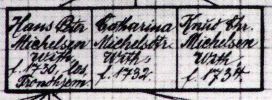 Hans Petr
Michelsen
With
f. 1730. les.
Trondhjem
Catharina
Michelsdtr.
With
f. 1732.
Knud Chr.
Michelsen
With
f. 1734.